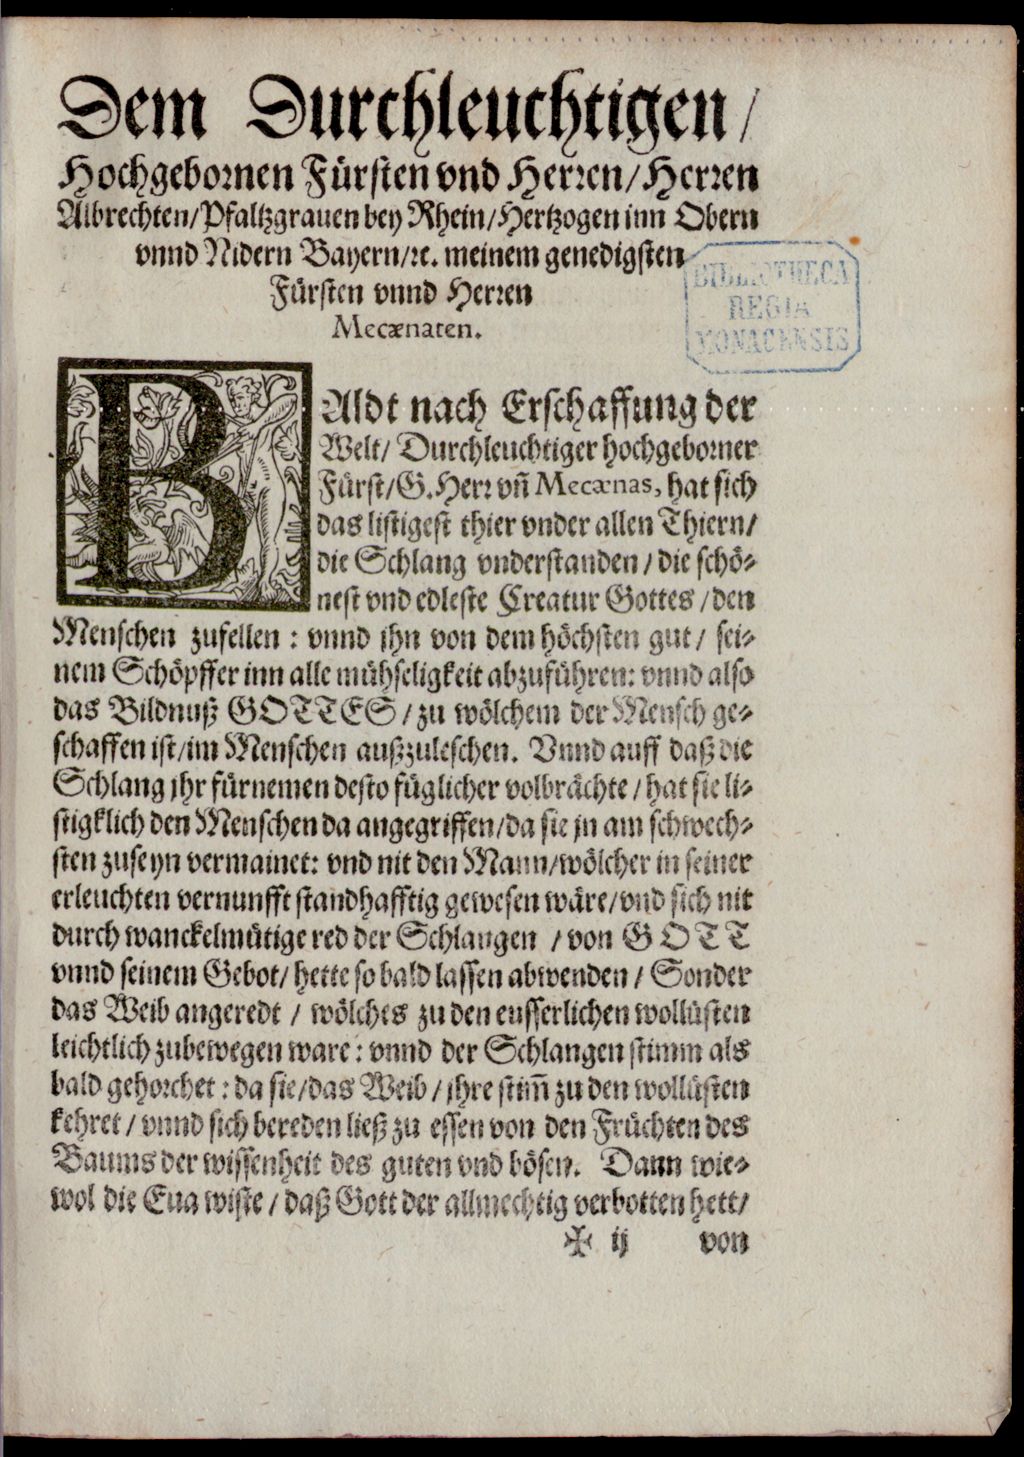 Dem Durchleuchtigen/
Hochgebornen Fürsten vnd Herren/Herren
Albrechten/Pfaltzgrauen bey Rhein/Hertzogen inn Obern
vnnd Nidern Bayern/ꝛc. meinem genedigsten
Fürsten vnnd Herren
Mecænaten.
BIBLIOTHECA
REGIA
MONACENSIS
BAldt nach Erschaffung der
Welt/ Durchleuchtiger hochgeborner
Fürst/G.Herr vn̄ Mecænas, hat sich
das listigest thier vnder allen Thiern/
die Schlang vnderstanden/die schö⸗
nest vnd edleste Creatur Gottes/den
Menschen zufellen: vnnd jhn von dem höchsten gut/ sei⸗
nem Schöpffer inn alle mühseligkeit abzuführen: vnnd also
das Bildnuß GOTTES/zu wölchem der Mensch ge⸗
schaffen ist/im Menschen außzuleschen. Vnnd auff daß die
Schlang jhr fürnemen desto füglicher volbrächte/hat sie li⸗
stigklich den Menschen da angegriffen/da sie jn am schwech⸗
sten zuseyn vermainet: vnd nit den Mann/wölcher in seiner
erleuchten vernunfft standhafftig gewesen wäre/vnd sich nit
durch wanckelmütige red der Schlangen /von GOTT
vnnd seinem Gebot/hette so bald lassen abwenden/ Sonder
das Weib angeredt / wölches zu den eusserlichen wollüsten
leichtlich zubewegen ware: vnnd der Schlangen stimm als
bald gehorchet: da sie/das Weib/jhre stim̄ zu den wollüsten
kehret/vnnd sich bereden ließ zu essen von den Früchten des
Baums der wissenheit des guten vnd bösen. Dann wie⸗
wol die Eua wiste/daß Gott der allmechtig verbotten hett/
✠ ij von